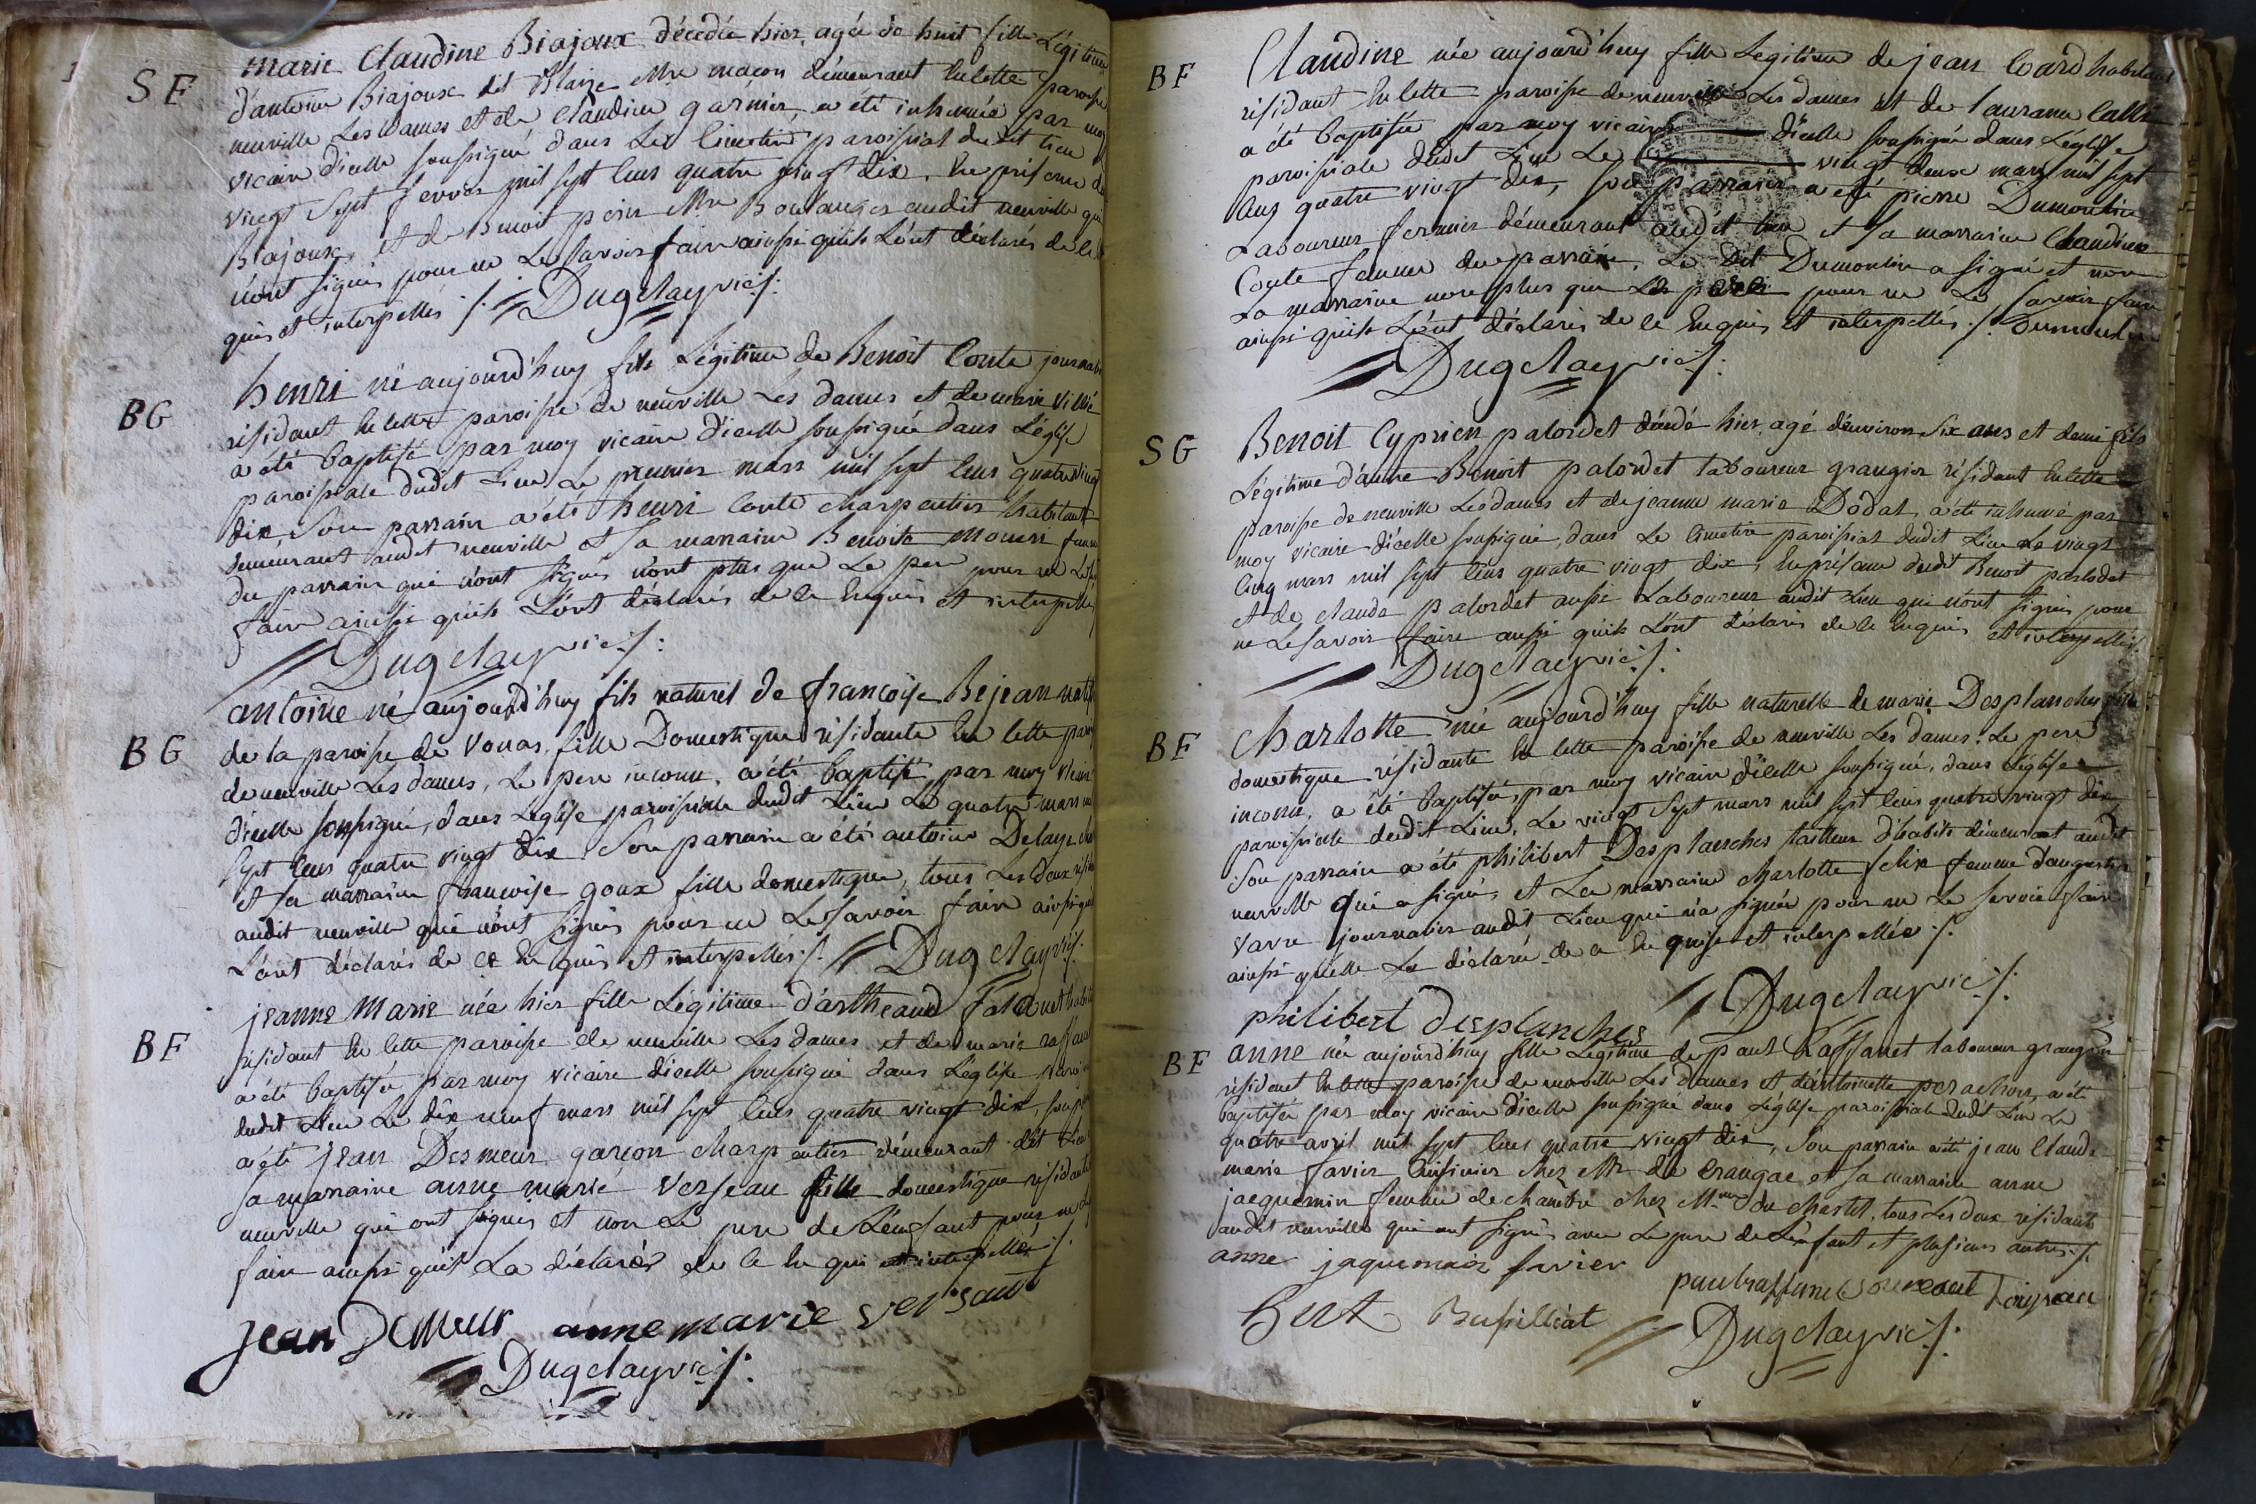 SF
marie Claudine Biajoux décédée hier, agée de huit fille Légitime
d'antoine Biajoux dit Blaize Mre maçon démeurant en cette paroisse
neuville Les dames et de Claudine garnier, a été inhumée par moy
vicaire d'icelle soussigné dans Le Cimetire paroissial dudit lieu
vingt sept fevrier mil sept cens quatre vingt dix, En présence
Biajoux, et de Benoit perin Mre Boulanger audit neuville qui
n'ont signés pour ne Le savoir faire ainsi qu'ils L'ont déclarés de ce
quis et interpellés ./. Dugclay vic ./.
BG
henri né aujourd'huy fils Légitime de Benoit Conte
résidant en cette paroisse de neuville Les dames et de marie
a été baptisé par moy vicaire d'icelle soussigné dans L'église
paroissiale dudit Lieu Le premier mars mil sept cens quatre vingt
dix, Son parrain a été henri Conte charpentier habitant
demeurant audit neuville et Sa marraine Benoite Mouon
du parrain qui n'ont signés n'ont plus que Le per pour ne
faire ainsi qu'ils L'ont déclarés de ce Enquis et interpellés
Dugclay vic ./.
BG
antoine né aujourd'huy fils naturel de françoise Bejean
de la paroisse de Vonas, fille Domestique résidante En cette
de neuville Les dames, Le pere inconnu, a été baptisé par moy vicaire
d'icelle soussigné, dans L'église paroissiale dudit Lieu Le quatre mars
sept cens quatre vingt dix Son parrain a été antoine Delaye
et Sa marraine françoise goux fille domestique, tous Les deux
audit neuville qui n'ont signés pour ne Le savoir faire
L'ont déclarés de ce Enquis et interpellés ./. Dugclay vic ./.
BF
jeanne Marie née hier fille Légitime d'artheaud
résidant En cette paroisse de neuville Les dames et de marie
a été baptisée par moy vicaire d'icelle soussigné dans L'église
dudit Lieu Le dix neuf mars mil sept cens quatre vingt dix,
a été jean Desmeur garçon charpentier démeurant
Sa marraine anne marie Verseau fille domestique
neuville qui ont signés et non Le pere de L'enfant pour ne
faire ainsi qu'il La déclarés de ce En qui et interpellés ./.
jean anne marie versaut
Dugclay vic ./.
BF
Claudine née aujourd'huy fille Legitime de jean habitant
résidant En cette paroisse de neuville Les dames et de
a été baptisée par moy vicaire d'icelle soussigné dans L'église
paroissiale dudit Lieu Le vingt deux mars mil sept
cens quatre vingt dix, son parrain a été pierre Dumoulin
Laboureur fermier démeurant audit lieu et Sa marraine Claudine
Conte femme du parrain, Le dit Dumoulin a signé et non
La marraine non plus que Le pere pour ne Le savoir faire
ainsi qu'ils L'ont déclarés de ce Enquis et interpellés ./. Dumoulin
Dugclay vic ./.
SG
Benoit Cyprien palordet décédé hier, agé d'environ Six ans et demi fils
Légitime d'autre Benoit palordet laboureur granger résidant En cette
paroisse de neuville Les dames et de jeanne marie Dodat, a été inhumé par
moy vicaire d'icelle soussigné, dans Le Cimetire paroissial dudit Lieu Le vingt
Cinq mars mil sept cens quatre vingt dix, En présence dudit Benoit palordet
et de Claude palordet aussi Laboureur audit Lieu qui n'ont signés pour
ne Le savoir faire ainsi qu'ils L'ont déclarés de ce Enquis et interpellés
Dugclay vic ./.
BF
Charlotte née aujourd'huy fille naturelle de marie Desplanches fille
domestique résidante En cette paroisse de neuville Les dames: Le pere
inconnu, a été baptisée, par moy vicaire d'icelle soussigné, dans L'église
paroissiale dudit Lieu, Le vingt Sept mars mil sept cens quatre vingt dix
Son parrain a été philibert Desplanches tailleur d'habits démeurant audit
neuville qui a signé, et La marraine charlotte felix femme d'augustin
Varre journalier audit Lieu qui n'a signée pour ne Le savoir faire
ainsi qu'elle La déclaré de ce En quise et interpellée ./.
philibert desplanches Dugclay vic ./.
BF
anne née aujourd'huy fille Légitime de paul Raffanet laboureur granger
résidant En cette paroisse de neuville Les dames et d'antoinette perachon, a été
baptisée par moy vicaire d'icelle soussigné dans L'église paroissiale dudit Lieu Le
quatre avril mil sept cens quatre vingt dix, Son parrain a été jean Claude
marie favier Cuisinier chez Mr de et Sa marraine anne
jacquemin femme de chambre chez Mme du chastel, tous Les deux résidants
audit neuville qui ont signés avec Le pere de L'enfant et plusieurs autres ./.
anne jaquemain favier
Dugclay vic ./.